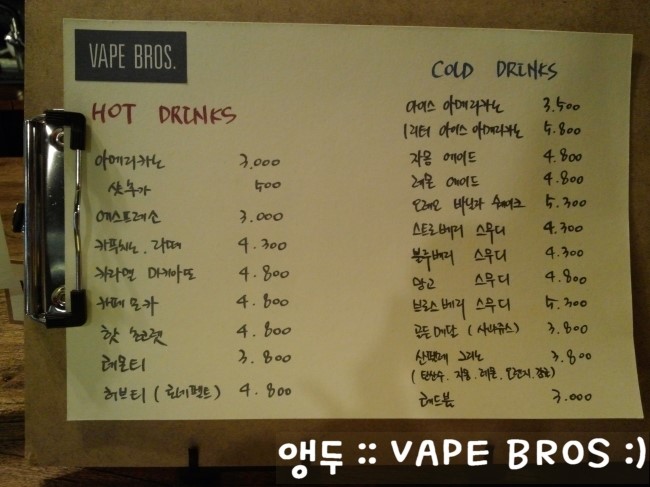 VAPE BROS.
HOT DRINKS
아메리카노 3.000
샷추가 500
에스프레소 3.000
카푸치노. 라떼 4.300
카라멜 마키아또 4.800
카페모카 4.800
핫 초코렛 4.800
레몬티 3.800
허브티 (로네펠트) 4.800
COLD DRINKS
아이스 아메리카노 3.500
1리터 아이스 아메리카노 5.800
자몽 에이드 4.800
레몬 에이드 4.800
오레오 바닐라 쉐이크 5.300
스트로베리 스무디 4.300
블루베리 스무디 4.300
망고 스무디 4.800
브로스베리 스무디 5.300
골든메달 (사과쥬스) 3.800
산펠레 그리노 3.800
(탄산수. 자몽. 레몬. 오렌지.
레드불 3.000
앵두 :: VAPE BROS :)